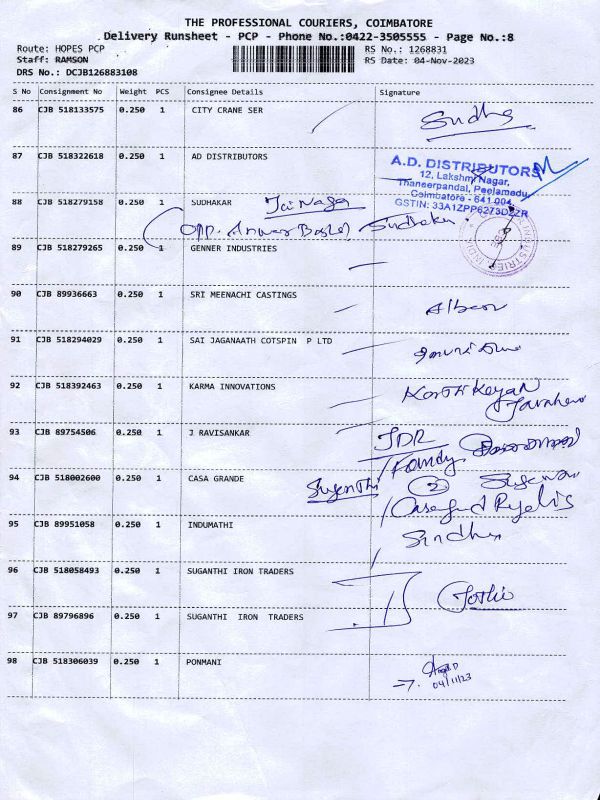 THE PROFESSIONAL COURIERS, COIMBATORE
Delivery Runsheet - PCP - Phone No.:0422-3505555 - Page No.:8
Route: HOPES PCP RS No.: 1268831
Staff: RAMSON RS Date: 04-Nov-2023
DRS No.: DCJB126883108
S No Consignment No Weight PCS Consignee Details Signature
86 CJB 518133575 0.250 1 CITY CRANE SER
87 CJB 518322618 0.250 1 AD DISTRIBUTORS
A.D. DISTRIBUTORS
12, Lakshmi Nagar,
Thaneerpandal, Peelamedu,
Coimbatore - 641 004.
88 CJB 518279158 0.250 1 SUDHAKAR Jai Nagar
Opp. Sudhakar
89 CJB 518279265 0.250 1 GENNER INDUSTRIES
90 CJB 89936663 0.250 1 SRI MEENACHI CASTINGS
91 CJB 518294029 0.250 1 SAI JAGANAATH COTSPIN P LTD
92 CJB 518392463 0.250 1 KARMA INNOVATIONS Karthikeyan
93 CJB 89754506 0.250 1 J RAVISANKAR
94 CJB 518002600 0.250 1 CASA GRANDE Suganthi 2
95 CJB 89951058 0.250 1 INDUMATHI Sindhu
96 CJB 518058493 0.250 1 SUGANTHI IRON TRADERS
97 CJB 89796896 0.250 1 SUGANTHI IRON TRADERS
98 CJB 518306039 0.250 1 PONMANI
04/11/23